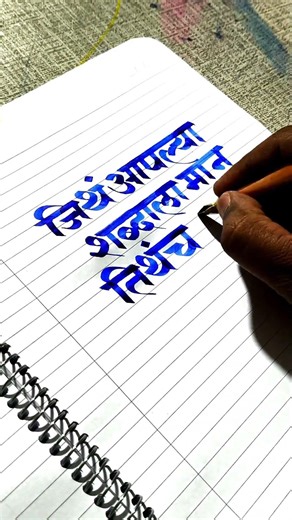 जिथं आपल्या
शब्दाला मान
तिथंच